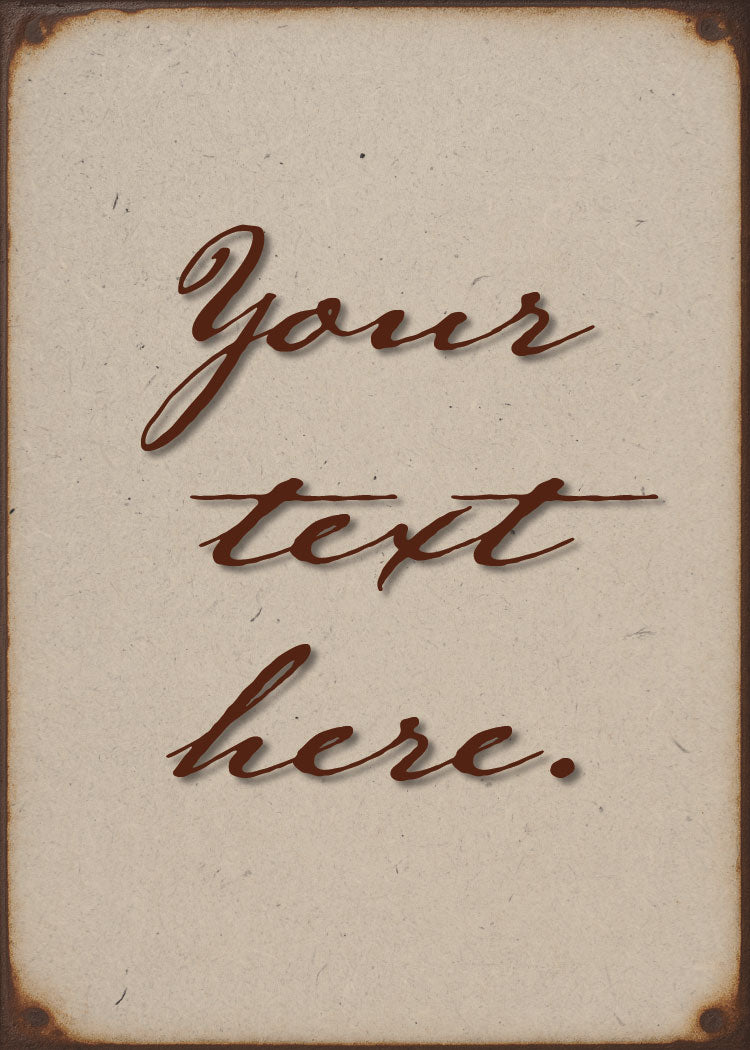 Your
text
here.